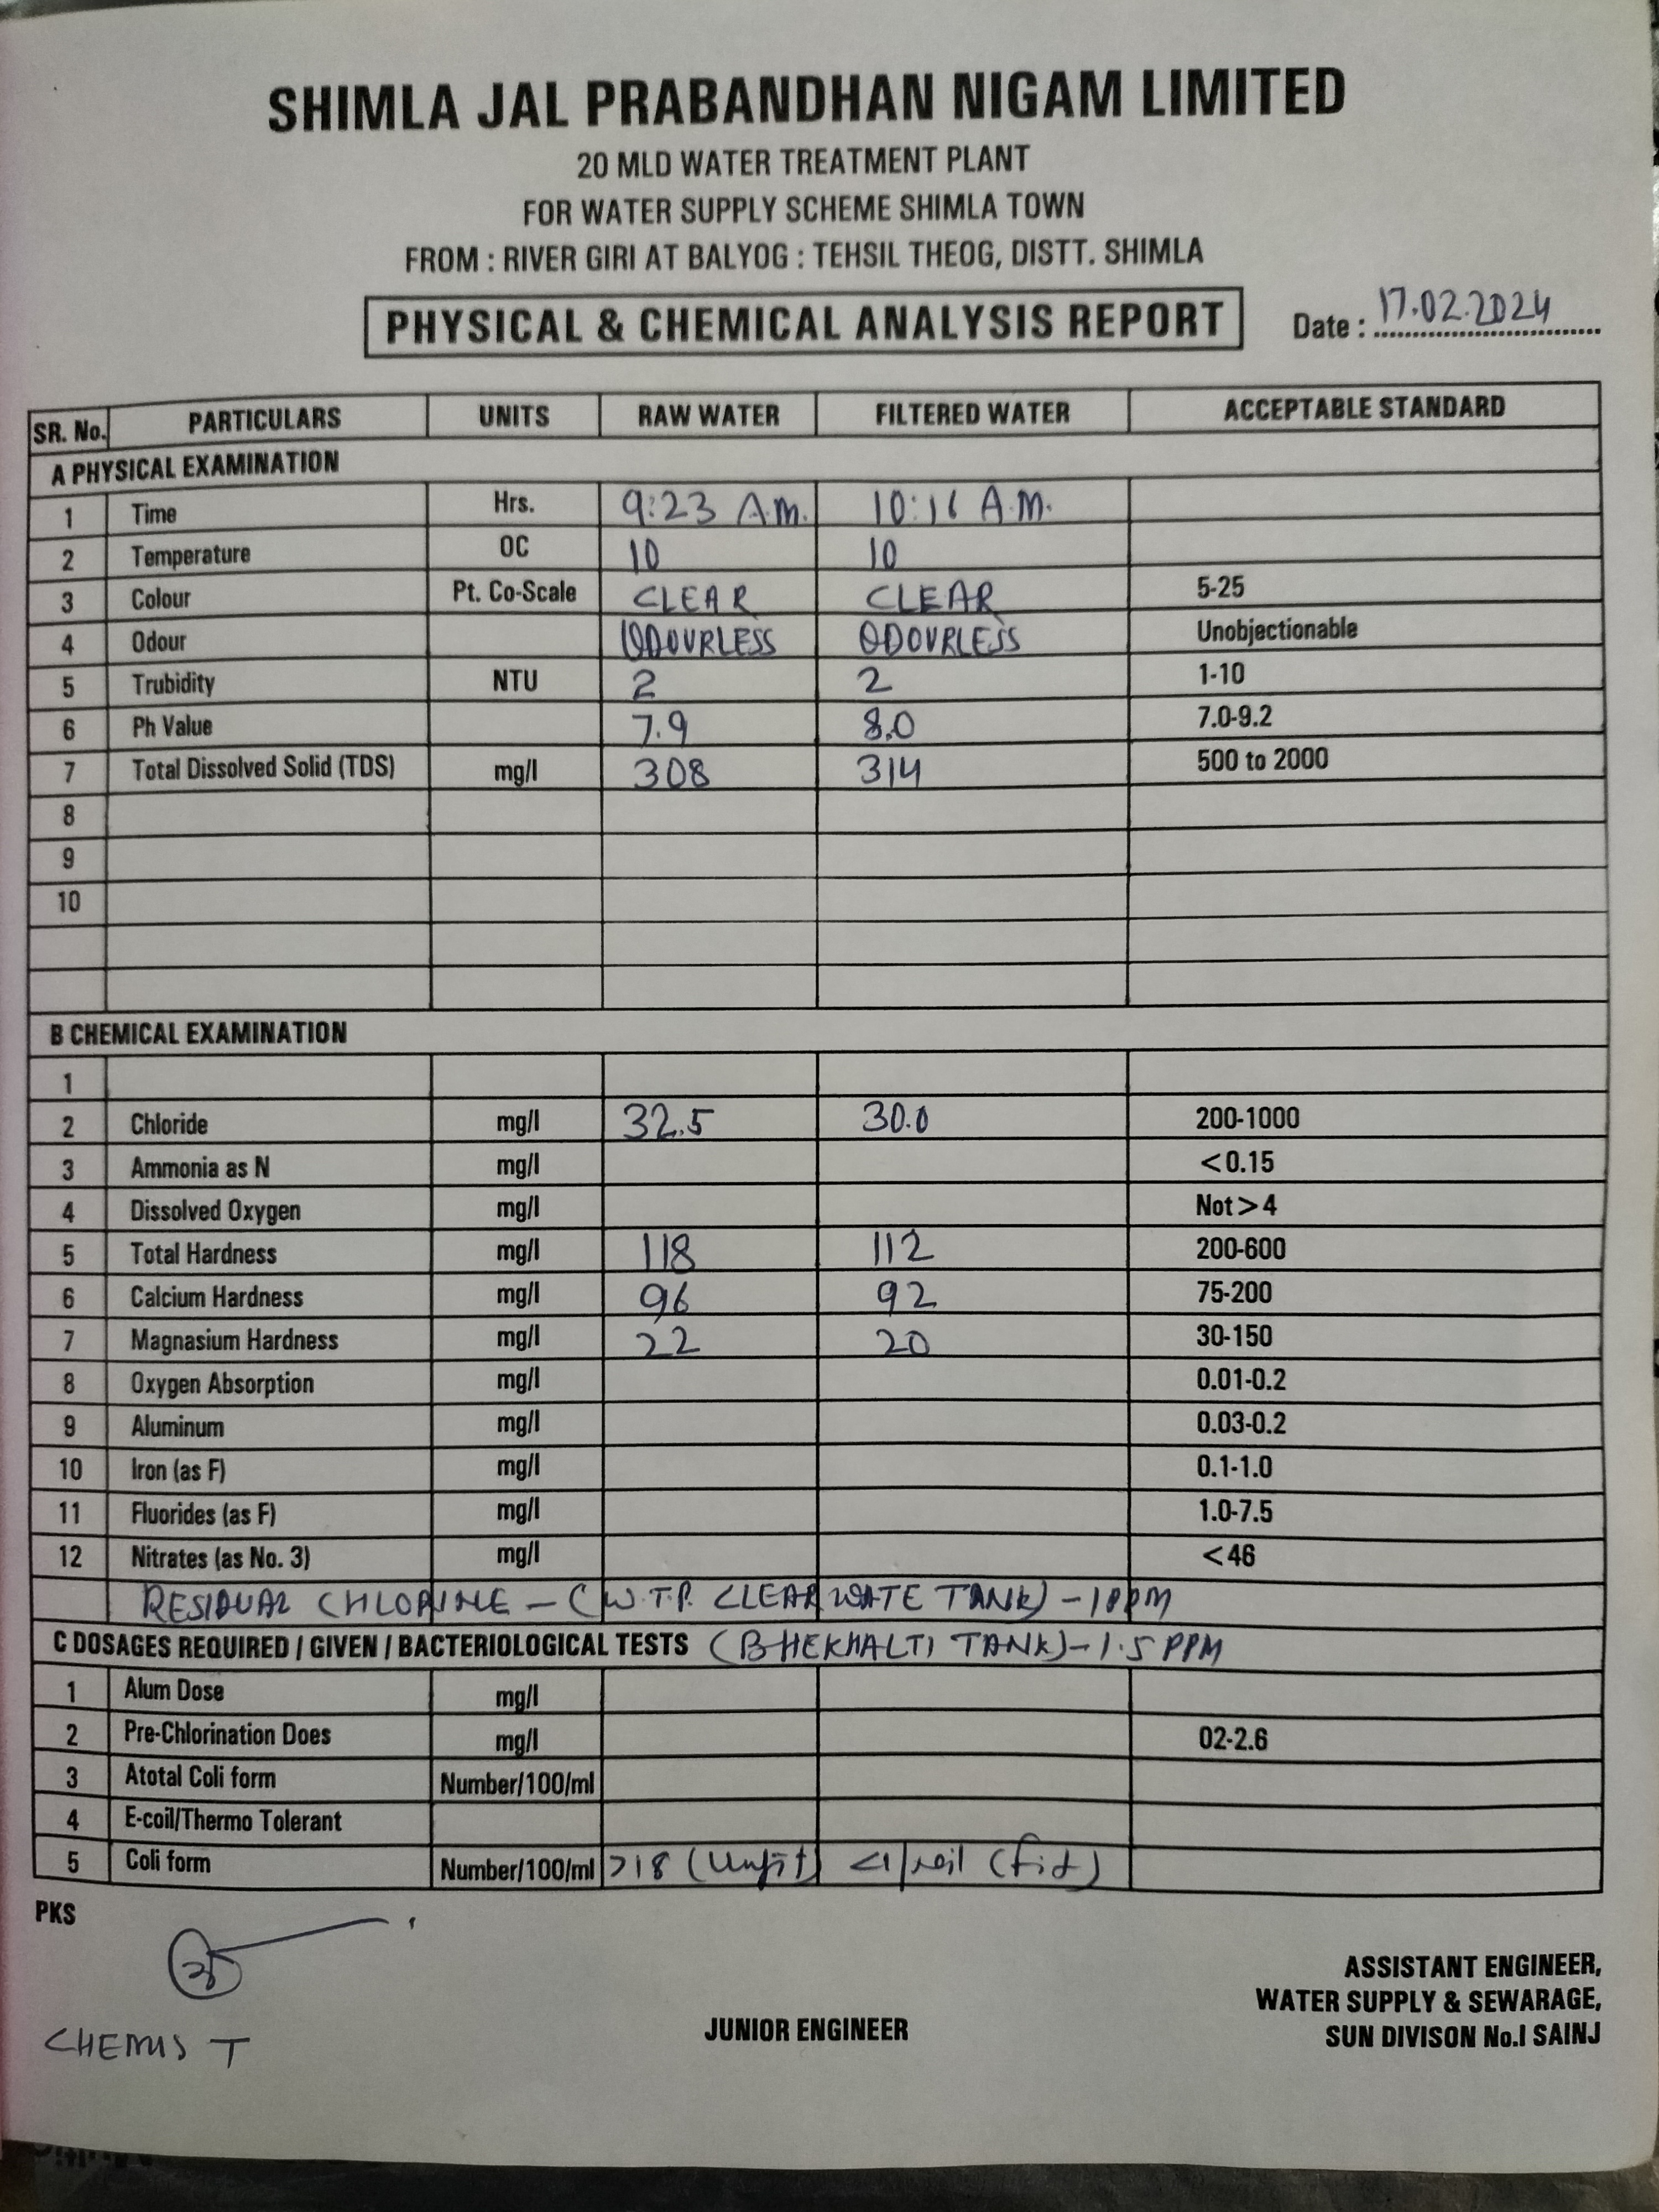 SHIMLA JAL PRABANDHAN NIGAM LIMITED
20 MLD WATER TREATMENT PLANT
FOR WATER SUPPLY SCHEME SHIMLA TOWN
FROM : RIVER GIRI AT BALYOG : TEHSIL THEOG, DISTT. SHIMLA
PHYSICAL & CHEMICAL ANALYSIS REPORT Date : 17.02.2024
SR. No. PARTICULARS UNITS RAW WATER FILTERED WATER ACCEPTABLE STANDARD
A PHYSICAL EXAMINATION
1 Time Hrs. 9:23 A.M. 10:16 A.M.
2 Temperature OC 10 10
3 Colour Pt. Co-Scale CLEAR CLEAR 5-25
4 Odour ODOURLESS ODOURLESS Unobjectionable
5 Trubidity NTU 2 2 1-10
6 Ph Value 7.9 8.0 7.0-9.2
7 Total Dissolved Solid (TDS) mg/l 308 314 500 to 2000
8
9
10
B CHEMICAL EXAMINATION
1
2 Chloride mg/l 32.5 30.0 200-1000
3 Ammonia as N mg/l <0.15
4 Dissolved Oxygen mg/l Not > 4
5 Total Hardness mg/l 118 112 200-600
6 Calcium Hardness mg/l 96 92 75-200
7 Magnasium Hardness mg/l 22 20 30-150
8 Oxygen Absorption mg/l 0.01-0.2
9 Aluminum mg/l 0.03-0.2
10 Iron (as F) mg/l 0.1-1.0
11 Fluorides (as F) mg/l 1.0-7.5
12 Nitrates (as No. 3) mg/l <46
RESIDUAL CHLORINE - (W.T.P. CLEAR WATE TANK) - 1 PPM
C DOSAGES REQUIRED / GIVEN / BACTERIOLOGICAL TESTS (BHEKHALTI TANK) - 1.5 PPM
1 Alum Dose mg/l
2 Pre-Chlorination Does mg/l 02-2.6
3 Atotal Coli form Number/100/ml
4 E-coil/Thermo Tolerant
5 Coli form Number/100/ml >18 (Unfit) <1/nil (fit)
PKS
CHEMIST
JUNIOR ENGINEER
ASSISTANT ENGINEER,
WATER SUPPLY & SEWARAGE,
SUN DIVISON No.I SAINJ